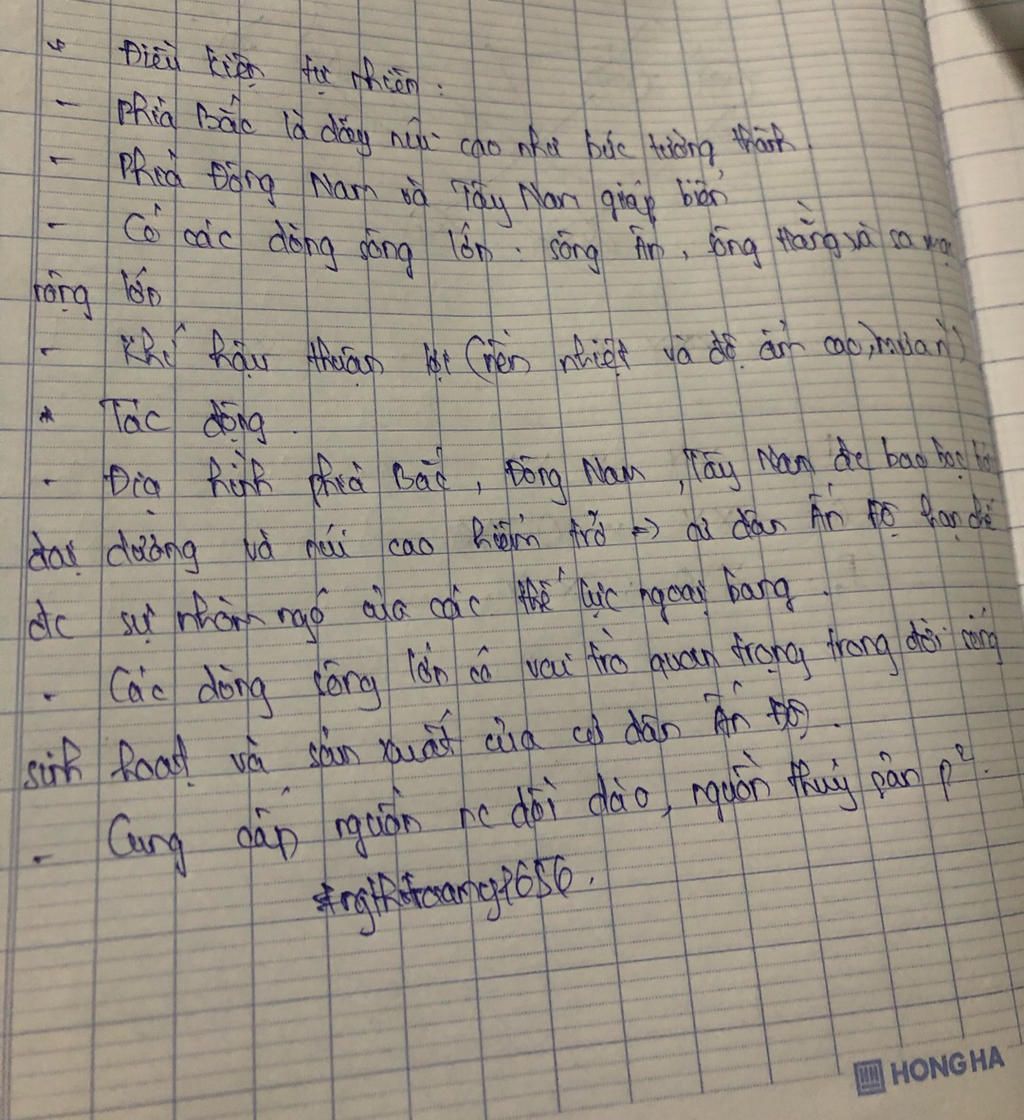 * Điều kiện tự nhiên:
- Phía Bắc là dãy núi cao như bức tường thành.
- Phía Đông Nam và Tây Nam giáp biển
- Có các dòng sông lớn: sông Ấn, sông Hằng và sa mạc
rộng lớn
- Khí hậu thuận lợi (nền nhiệt và độ ẩm cao, mưa
* Tác động.
- Địa hình phía Bắc, Đông Nam, Tây Nam đc bao bọc bởi
đại dương và núi cao hiểm trở => cư dân Ấn Độ hạn chế
đc sự nhòm ngó của các thế lực ngoại bang.
- Các dòng sông lớn có vai trò quan trọng trong đời sống
sinh hoạt và sản xuất của cư dân Ấn Độ.
- Cung cấp nguồn nc dồi dào, nguồn thuỷ sản p².
HONG HA